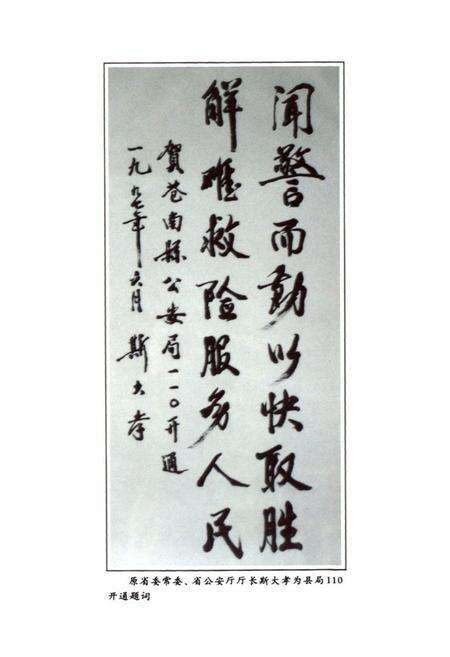 闻警而動以快取胜
解难救险服务人民
賀苍南縣公安局一一〇开通
一九九七年六月 斯大孝
原省委常委、省公安厅厅长斯大孝为县局110
开通题词